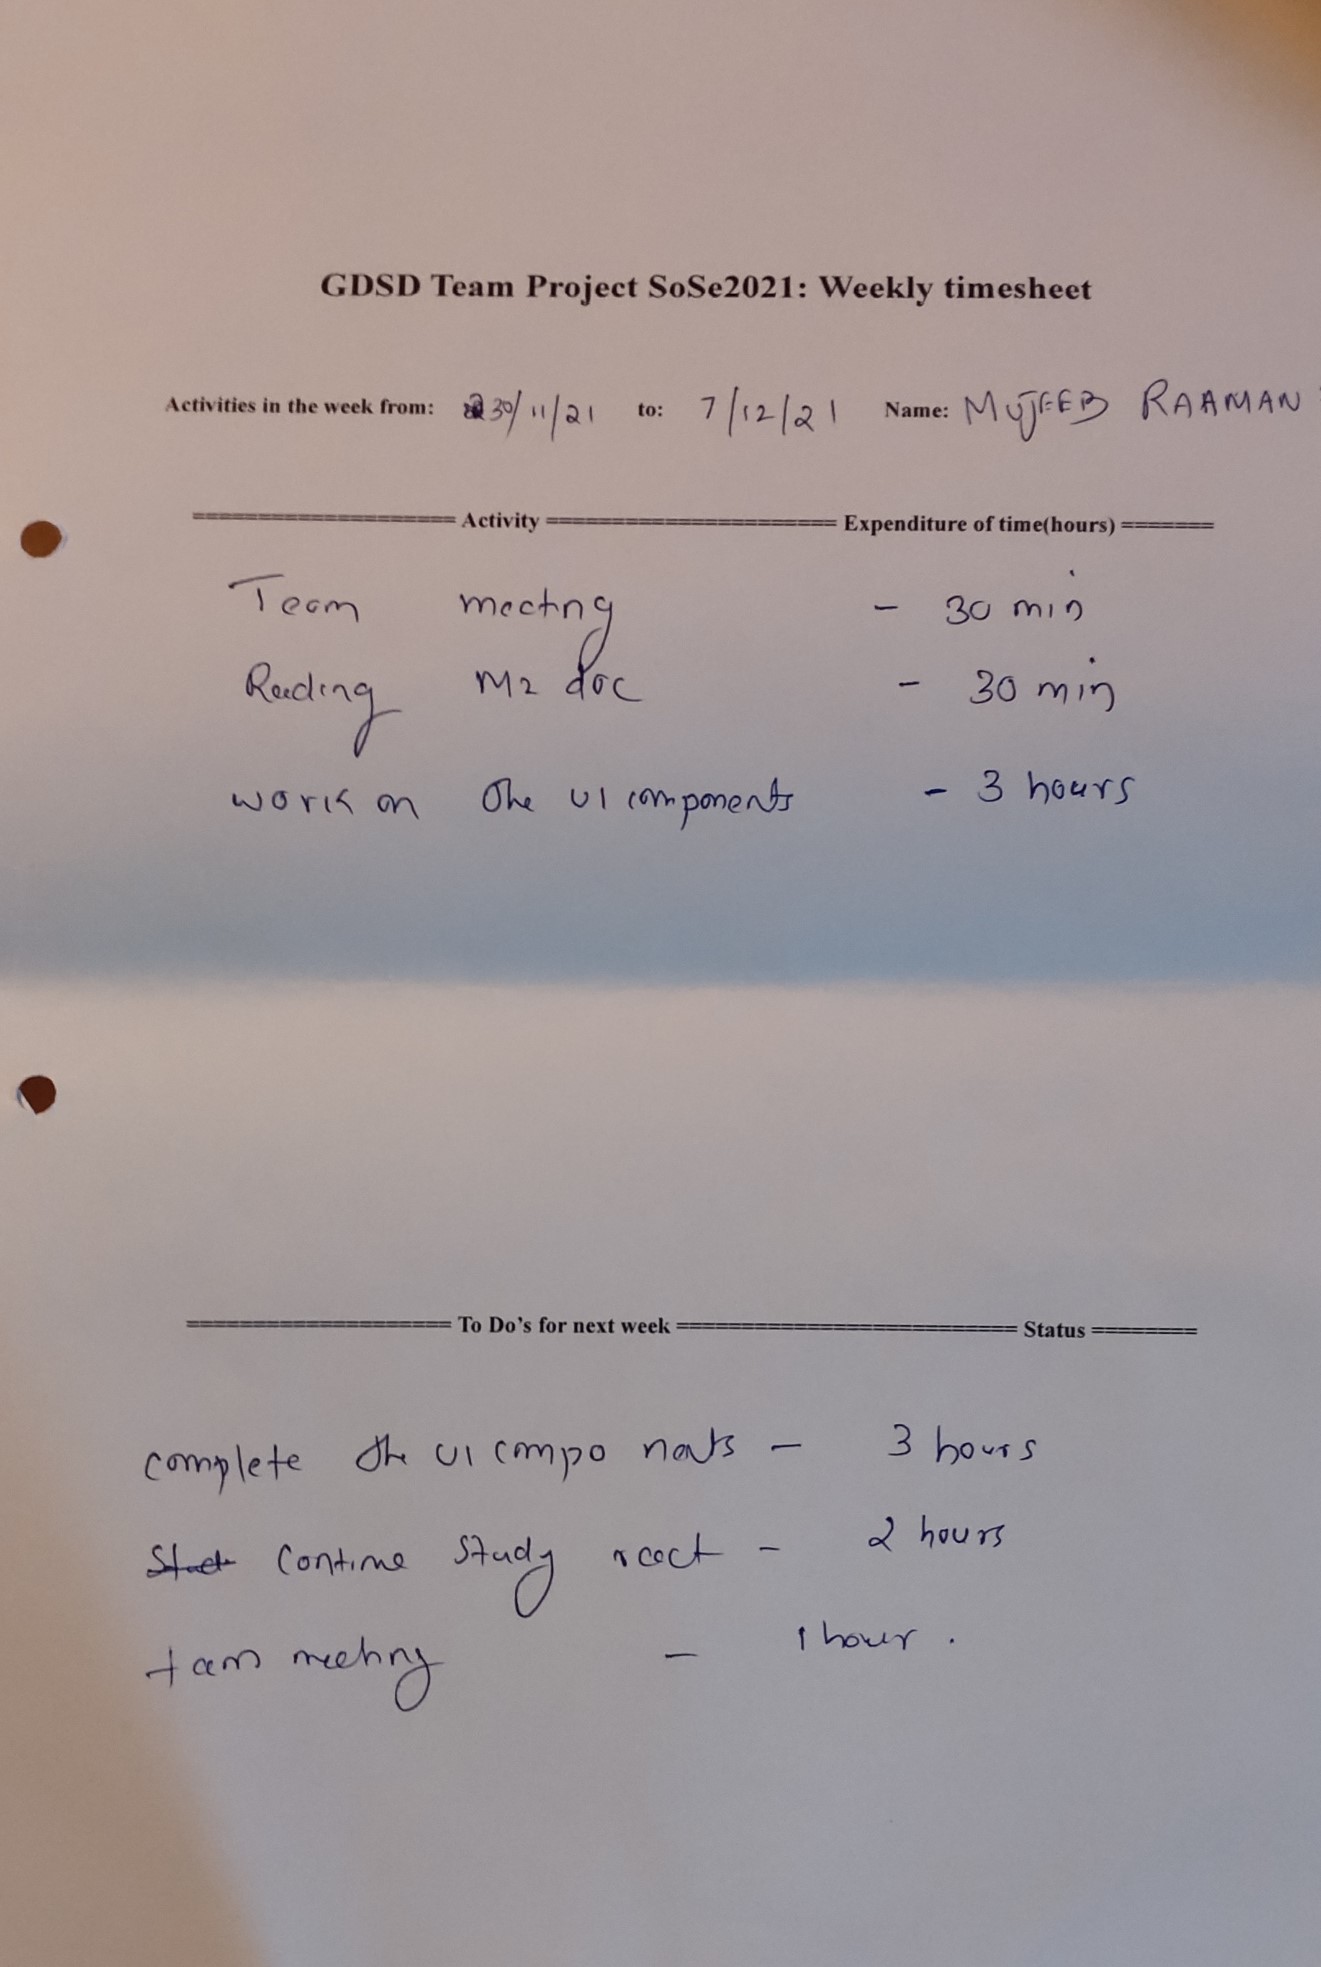 GDSD Team Project SoSe2021: Weekly timesheet
Activities in the week from: 30/11/21 to: 7/12/21 Name: MUJEEB RAAMAN
=================== Activity ===================== Expenditure of time(hours) =======
Team meeting - 30 min
Reading M2 doc - 30 min
work on the UI components - 3 hours
=================== To Do's for next week ========================= Status ========
complete the UI components - 3 hours
continue study react - 2 hours
team meeting - 1 hour.